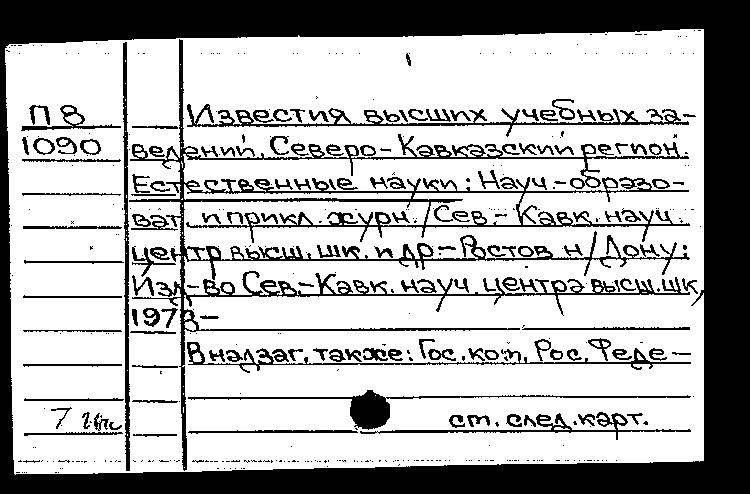 П 8 Известия высших учебных за-
1090 ведений. Северо-Кавказский регион.
Естественные науки: Науч.-образо-
ват. и прикл. журн. / Сев.-Кавк. науч.
центр высш. шк. и др. - Ростов н/Дону:
Изд-во Сев.-Кавк. науч. центра высш. шк,
1973-
В надзаг. также: Гос. ком. Рос. Феде-
7 ст. след. карт.